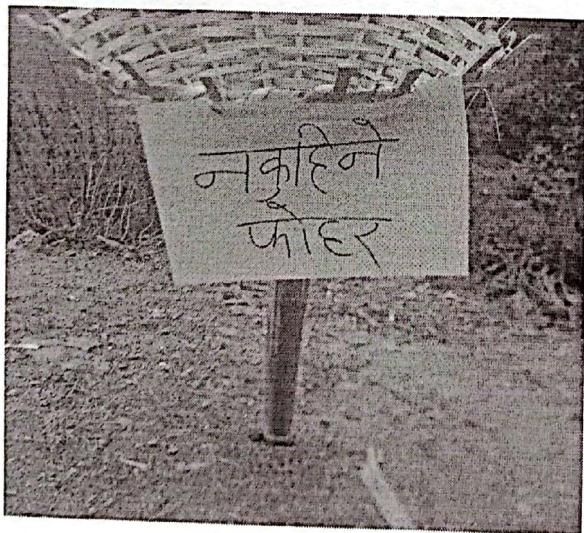 नकुहिने
फोहर